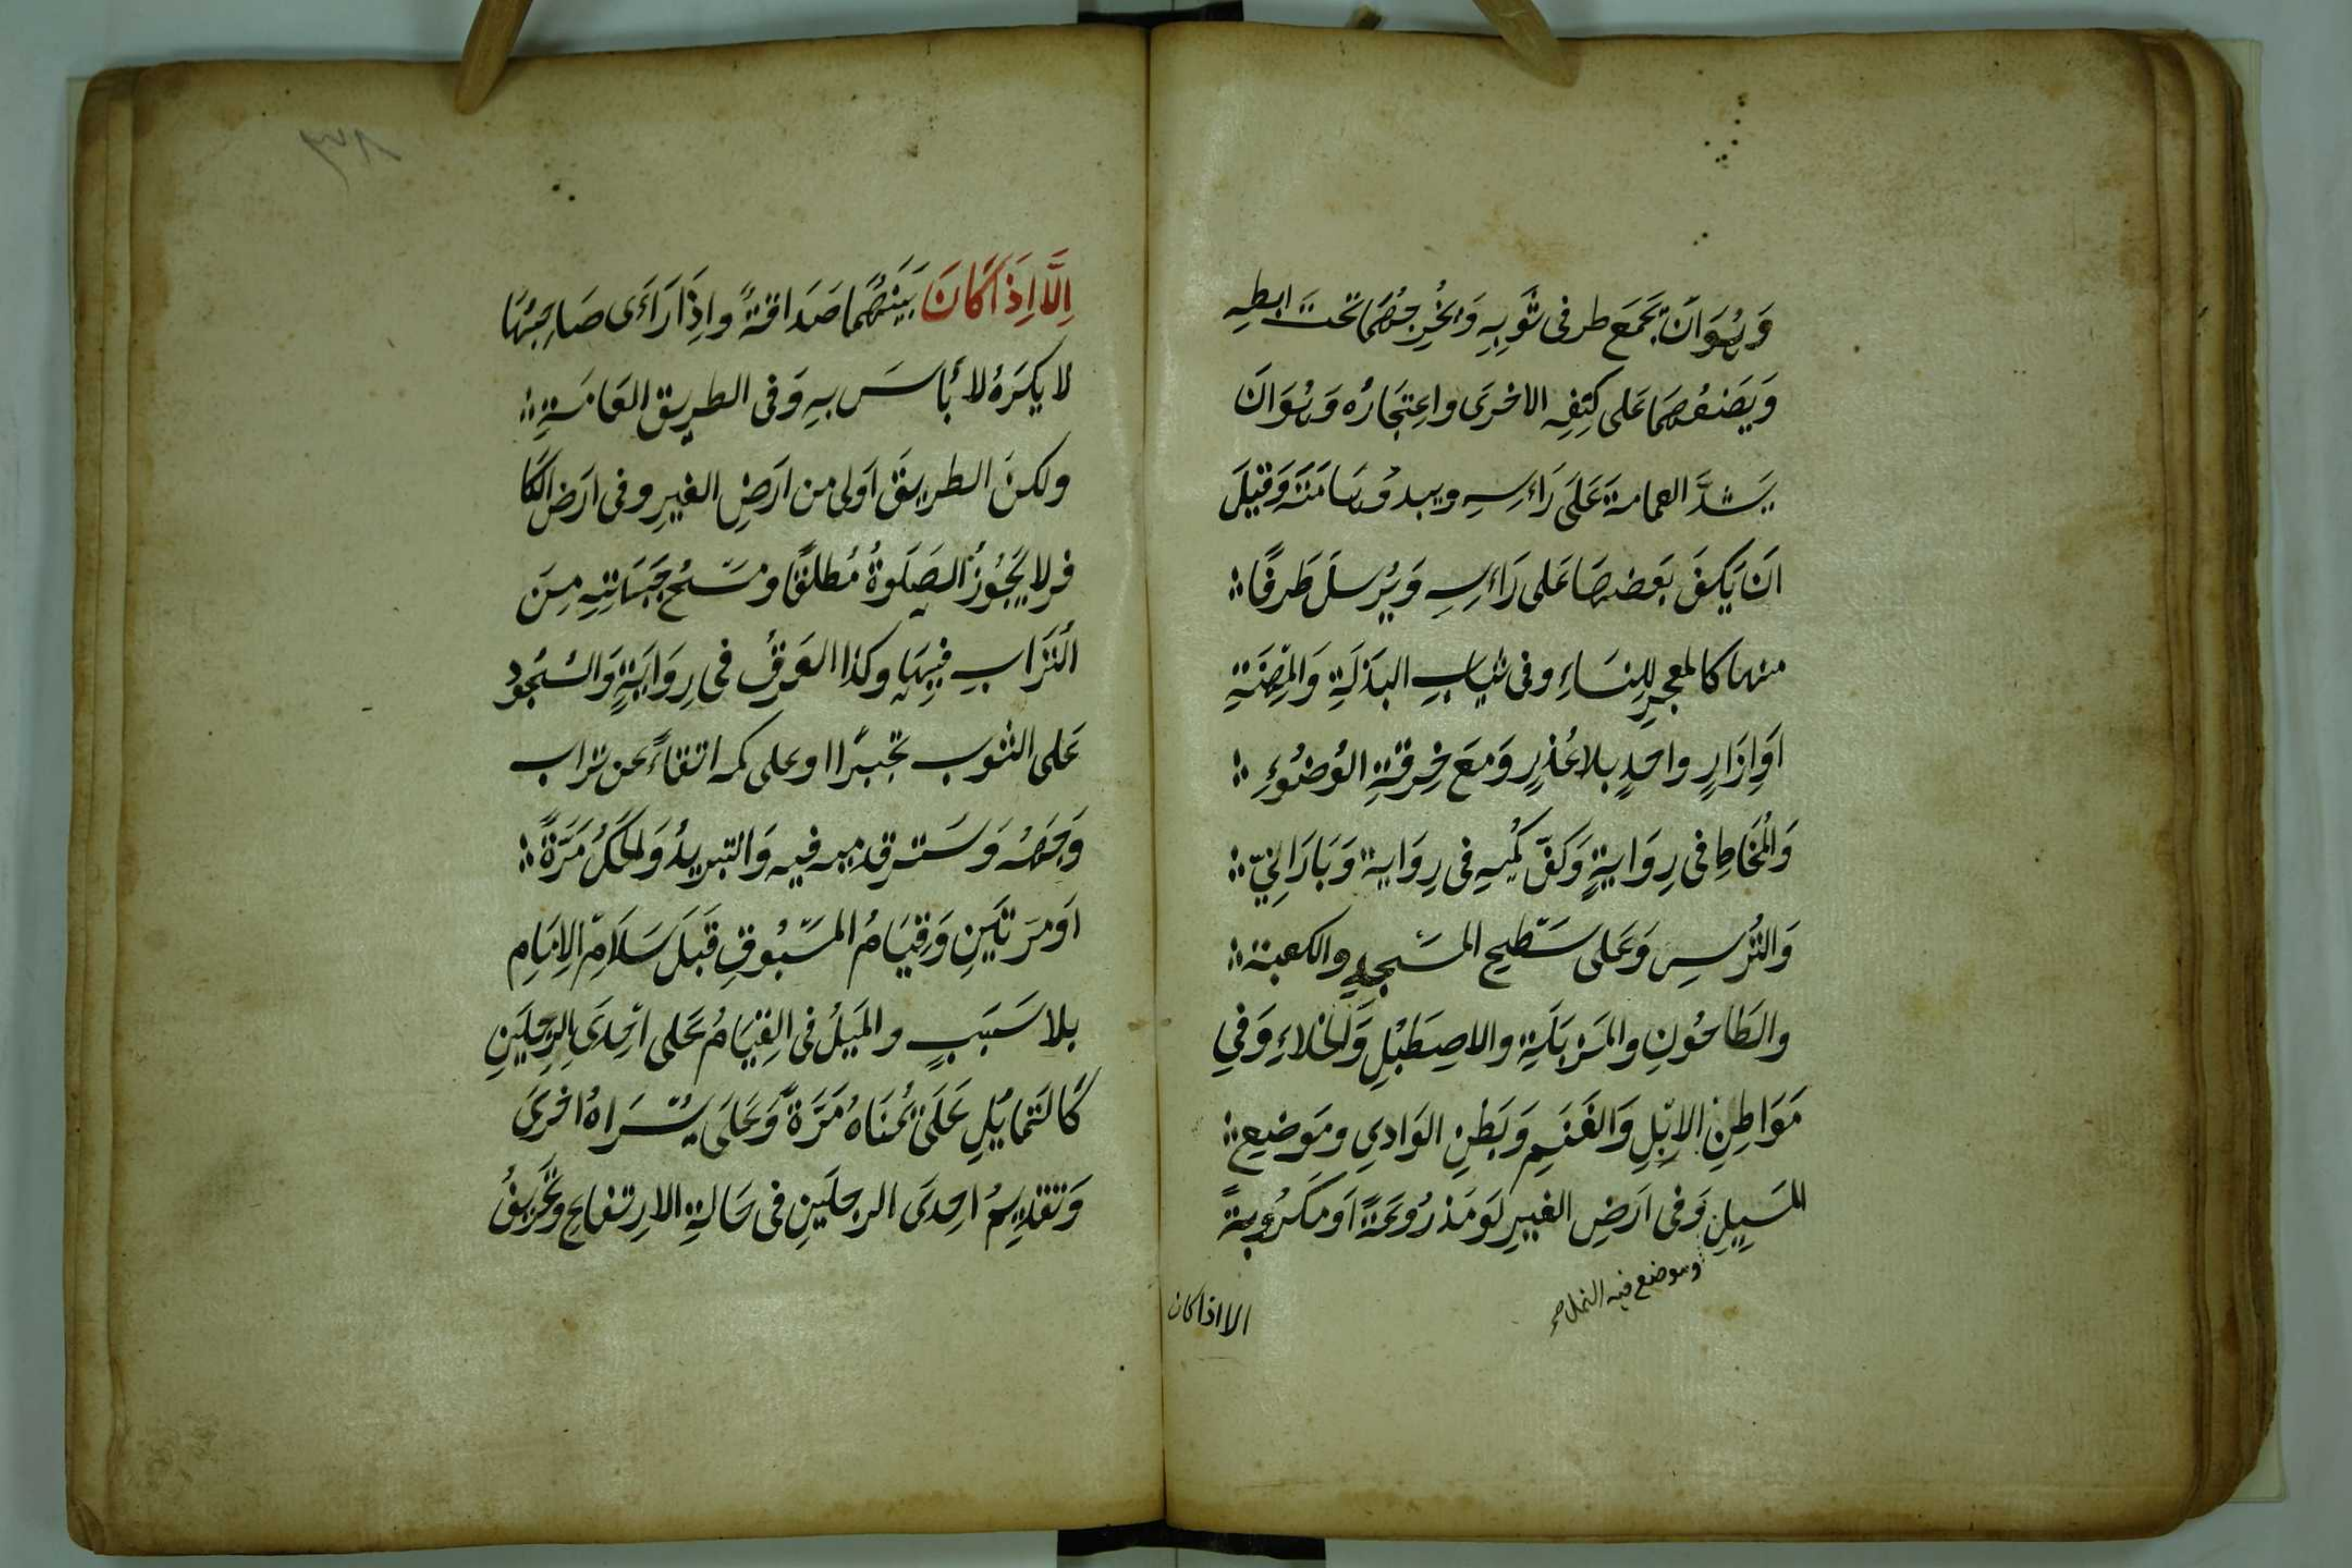 وَهُوَ اَنْ يَجْمَعَ طرفى ثَوْبِهِ وَيُخْرِجُهُمَا تَحتَ ابطِهِ
وَيَضَعُهُمَا عَلى كَتِفِهِ الاخْرَى واعِتجَارُه وَهُوَ انَ
يَشدَّ العمامةَ عَلَى رَاءسِهِ ويبدوُ هَامَتَهُ وَقيلَ
انَ يَكفَ بَعَضهَا عَلى رَاءسِهِ وَيُرْسلَ طَرفًا
منها كالمعجرِ لِلنسَاءِ وفى ثيابِ البَذلَةِ وَالمِهنَةِ
اوَاِزَارٍ واحدٍ بلا عُذرٍ وَمَعَ خِرقَةِ الوُضُوُءِ
وَالمُخَاطِ فى رِوَايةٍ وَكَفّ كُمِيهِ فى رِوَاية وَبَارَانِيّ
وَالتُرسِ وَعَلى سَطْحِ المَسْجِدِ والكعبة
والطَاحُونِ والمَزبَلَةِ والاصِطَبْلِ وَالخلاءِ وَفي
مَوَاطِنِ الاِبِلِ وَالغَنَمِ وَبَطنِ الوَادِي ومَوضِعِ
المَسَيِلِ وَفى اَرَضِ الغَيرِ لَوَ مَذرُوعَةً اَو مَكرُوبةً
وموضع فيه النمل صح
الا اذا كان
اِلَّا اِذَا كَانَ بَينَهُمَا صَدَاقةً واِذَا رَاءَى صَاحِبُهَا
لا يكرَهُ لا بأسَ بهِ وَفى الطريق العَامَةِ
ولكنَ الطريقَ اَولى من ارَضِ الغيرِ وفى ارَض الكا
فر لا يَجُوُز الصَلَوةُ مُطلقًا ومَسْحُ جَبهَتِهِ مِنَ
التُرَابِ فيهَا وكذا العَرقُ فى رِوَايَةٍ وَالسُجُود
عَلى الثوب تجبرًا اوعلى كمه اتقاءً عن تراب
وَجههُ وَستر قدميه فيه وَالتبريدُ وَالحكُ مَرَةً
اَومَرَتَينِ وَقيَامُ المسَبُوقِ قَبلَ سَلَامِ الاِمَامِ
بلا سَببٍ والمَيلُ فى القِيَامُ عَلى احْدَى الرِجلَينِ
كَالتَمايُلِ عَلَى يُمنَاهُ مَرَةً وَعَلَى يسُرَاهُ اخرىَ
وَتقدِيمُ احِدَى الرجلَينِ فى حَالةِ الارتفاعِ وتحَريفُ